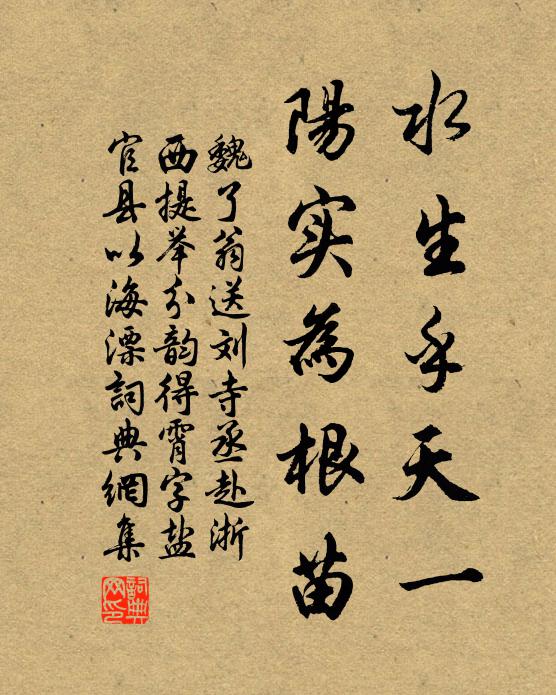 水生乎天一
陽实為根苗
魏了翁送刘寺丞赴浙
西提举分韵得霄字盐
官县以海漂詞典網集
詞典
网印